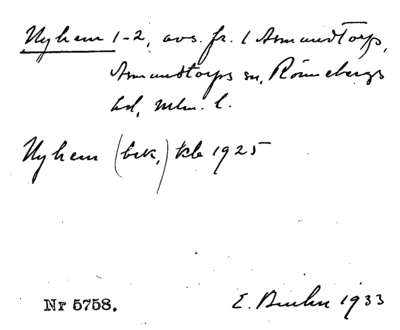 Nyhem 1-2, avs. fr. 1 Asmundtorp,
Asmundtorps sn, Rönnebergs
hd, Mlm. l.
Nyhem (bek,) kb 1925
Nr 5758.
E. 1933